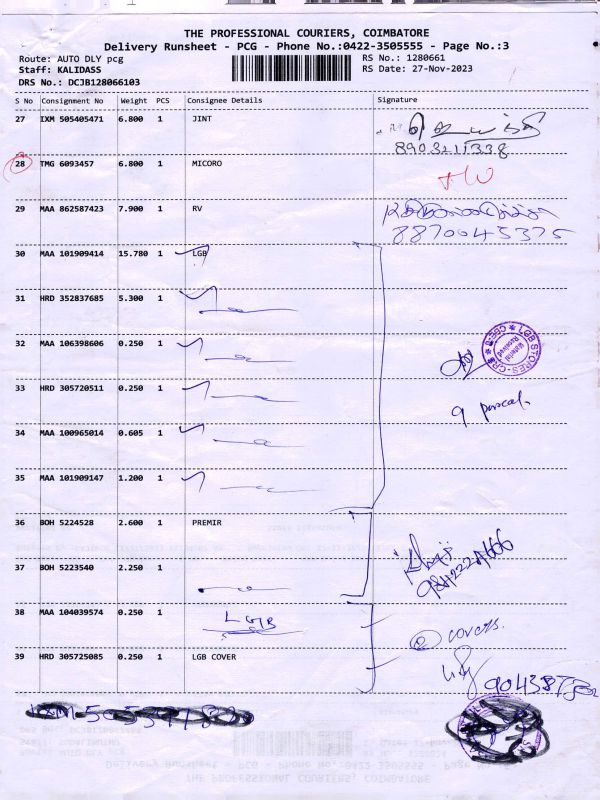 THE PROFESSIONAL COURIERS, COIMBATORE
Delivery Runsheet - PCG - Phone No.:0422-3505555 - Page No.:3
Route: AUTO DLY pcg
RS No.: 1280661
Staff: KALIDASS
RS Date: 27-Nov-2023
DRS No.: DCJB128066103
S No Consignment No Weight PCS Consignee Details Signature
27 IXM 505405471 6.800 1 JINT
8903211338
28 TMG 6093457 6.800 1 MICORO
29 MAA 862587423 7.900 1 RV
8870045375
30 MAA 101909414 15.780 1 LGB
31 HRD 352837685 5.300 1
32 MAA 106398606 0.250 1
LGB STORES-CR
33 HRD 305720511 0.250 1
9 parcal.
34 MAA 100965014 0.605 1
35 MAA 101909147 1.200 1
36 BOH 5224528 2.600 1 PREMIR
37 BOH 5223540 2.250 1
38 MAA 104039574 0.250 1 LGB
② covers.
39 HRD 305725085 0.250 1 LGB COVER